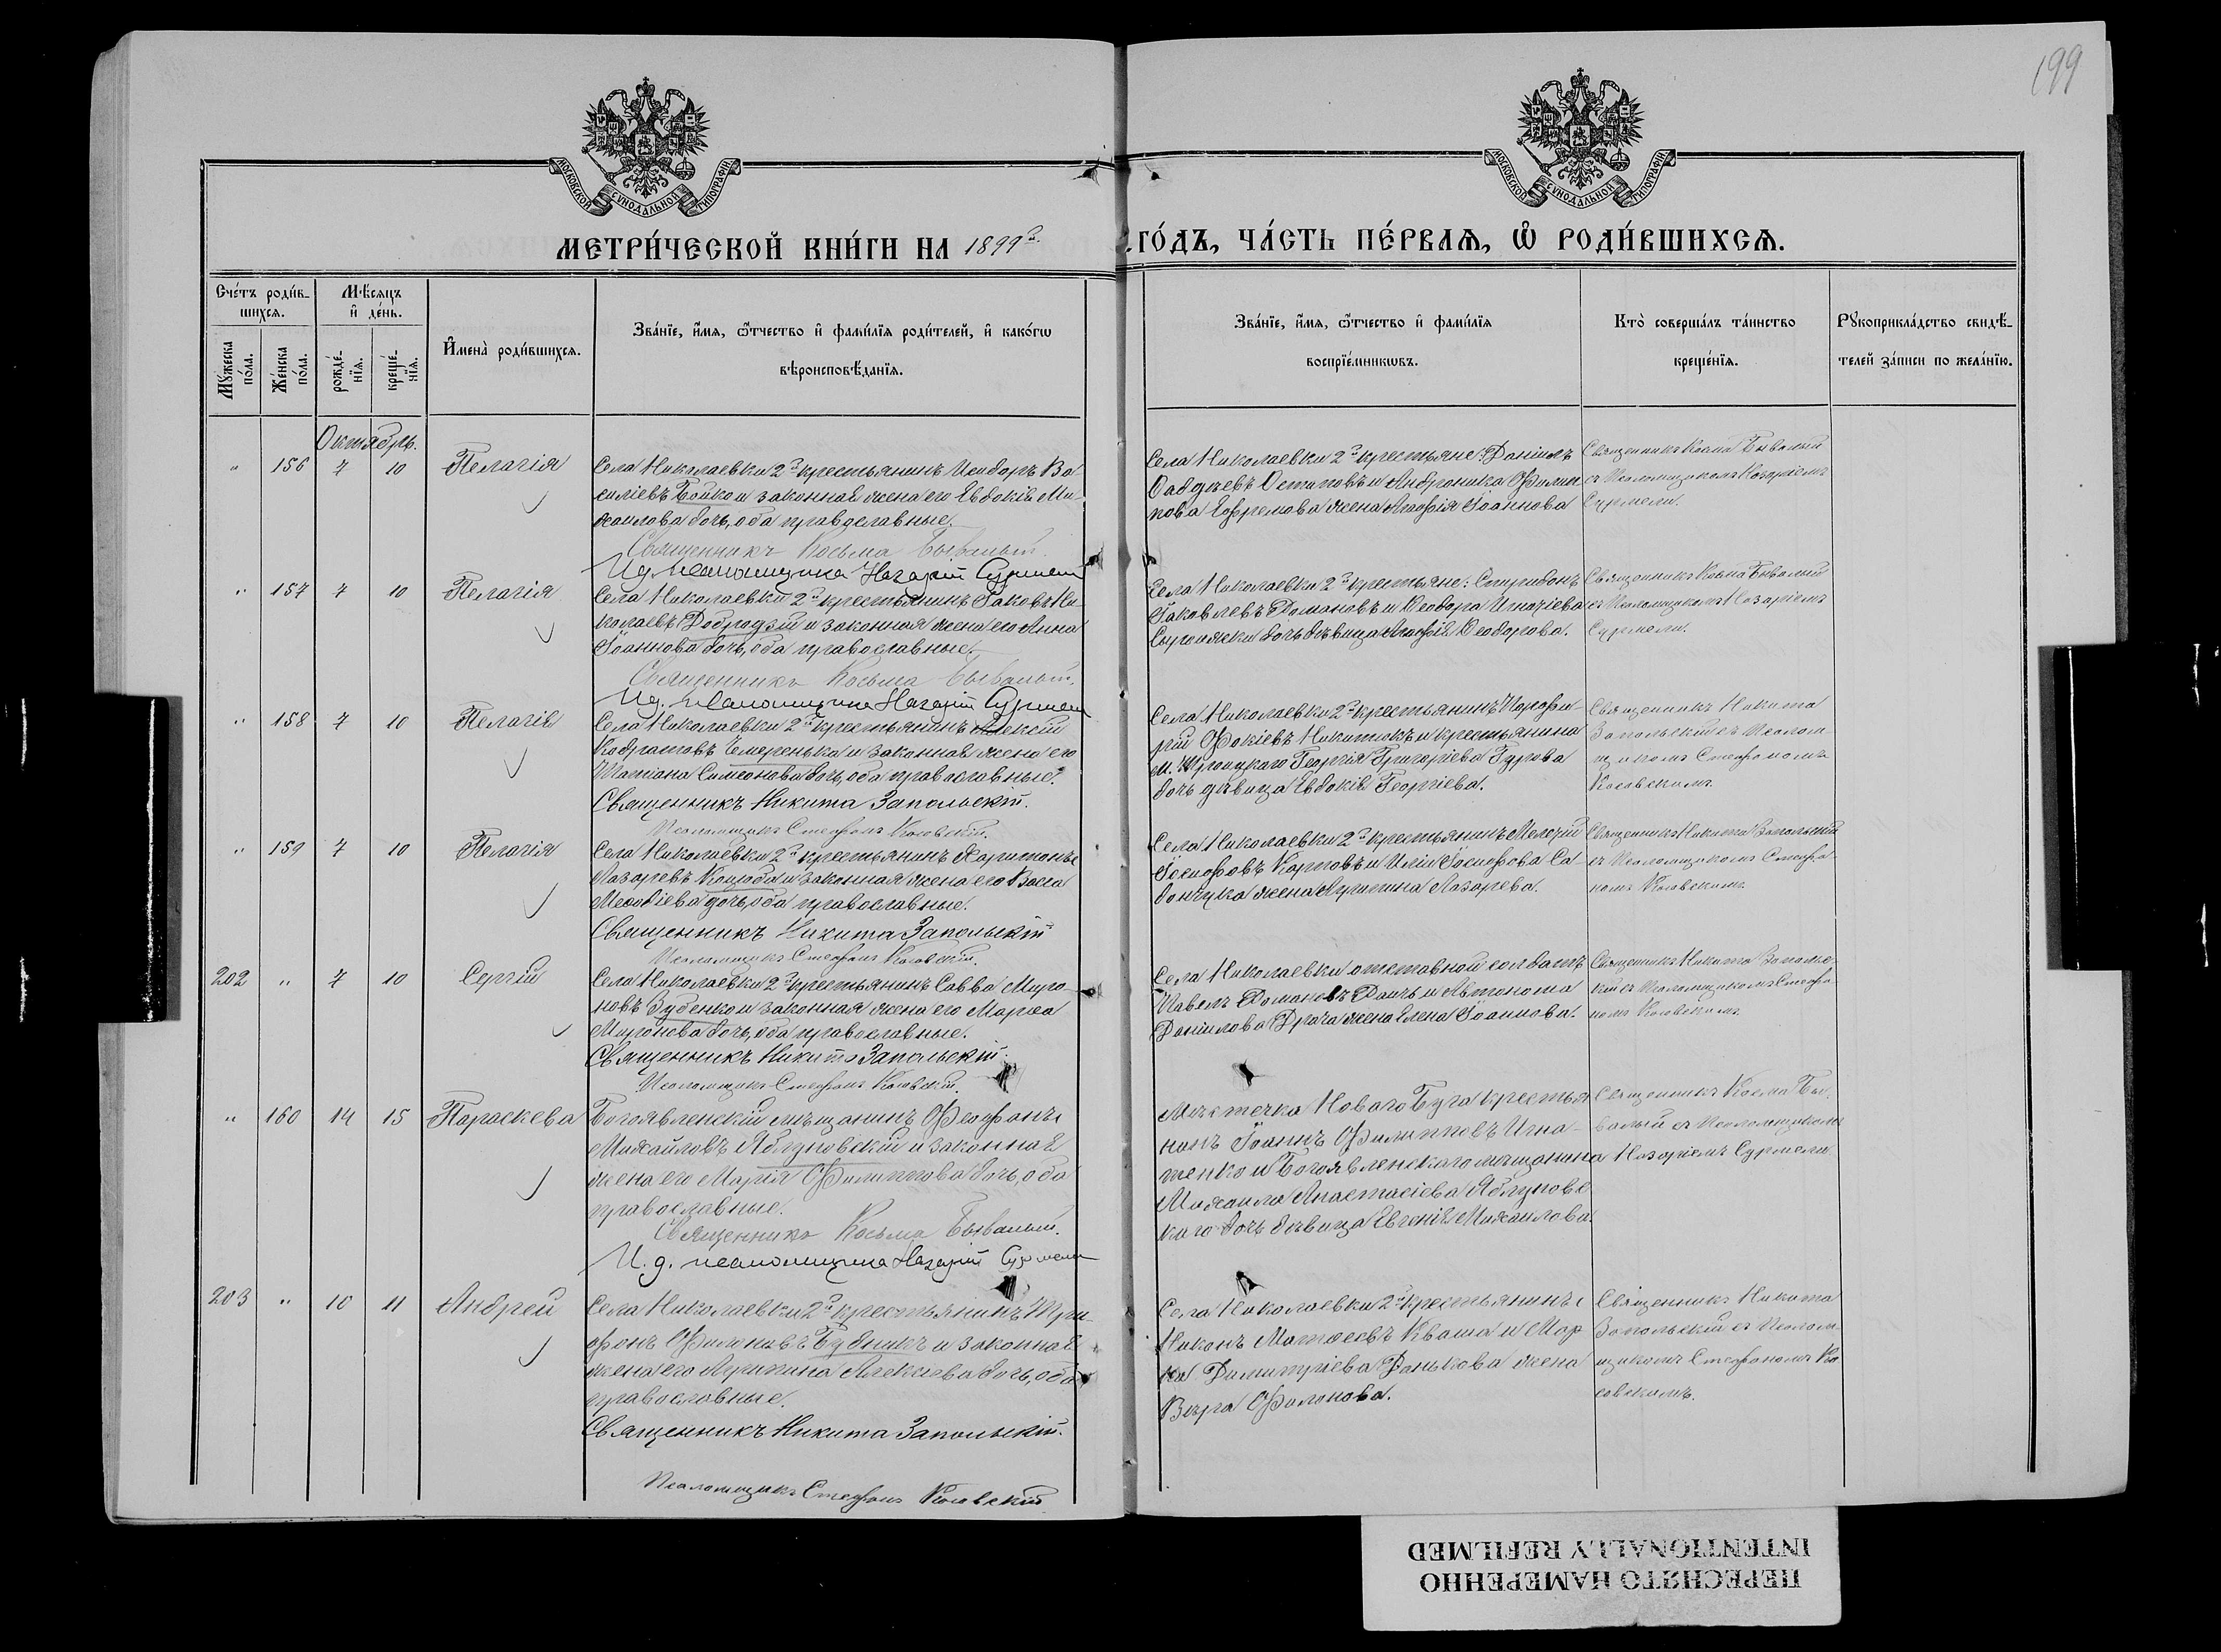 199
МОСКОВСКОЙ СѴНОДАЛЬНОЙ ТИПОГРАФІИ
МОСКОВСКОЙ СѴНОДАЛЬНОЙ ТИПОГРАФІИ
МЕТРИ́ЧЕСКОЙ КНИ́ГИ НА 1899й
ГО́ДЪ, ЧА́СТЬ ПЕ́РВАЯ, Ѡ РОДИ́ВШИХСЯ.
Сче́тъ роди́в-
шихся.
Мѣ́сяцъ
и҆ де́нь.
Му́жеска по́ла.
Же́нска по́ла.
рожде́-нїя.
креще́-нїя.
И҆мена̀ роди́вшихся.
Зва́нїе, и҆́мя, ѻ҆́тчество и҆ фами́лїя роди́телей, и҆ како́гѡ
вѣроисповѣ́данїя.
Зва́нїе, и҆́мя, ѻ҆́тчество и҆ фами́лїя
воспрїе́мникѡвъ.
Кто̀ соверша́лъ та́инство
креще́нїя.
Рꙋкоприкла́дство свидѣ́-
телей за́писи по жела́нїю.
Октябрь.
" 156 7 10 Пелагія
Села Николаевки 2й крестьянинъ Исидоръ Ва
силіевъ Бойко и законная жена его Евдокія Ми-
хаилова дочь, оба православные.
Священникъ Косьма Бывалый.
И. д. псаломщика Назарій Сурмели
Села Николаевки 2й крестьяне: Даніилъ
Осиповъ и Андроника Филип
пова Ефремова жена Агафія Іоаннова
Священникъ Косма Бывалый
съ Псаломщикомъ Назаріемъ
Сурмели.
" 157 7 10 Пелагія
Села Николаевки 2й крестьянинъ Іаковъ Ни-
колаевъ Добродзій и законная жена его Анна
Іоаннова дочь, оба православные.
Священникъ Косьма Бывалый.
И. д. псаломщика Назарій Сурмели
Села Николаевки 2й крестьяне: Спиридонъ
Іаковлевъ Романовъ и Ѳеодора Игнатіева
дочь дѣвица Агафія Ѳеодорова.
Священникъ Косма Бывалый
съ Псаломщикомъ Назаріемъ
Сурмели.
" 158 7 10 Пелагія
Села Николаевки 2й крестьянинъ Алексій
Кодратовъ Чемеренько и законная жена его
Татіана Симеонова дочь, оба православные.
Священникъ Никита Запольскій.
Псаломщикъ Стефанъ Косовскій.
Села Николаевки 2й крестьянинъ Порфи-
рій Фокіевъ Никитокъ и крестьянина
м. Троицкаго Георгія Григоріева Гурова
дочь дѣвица Евдокія Георгіева.
Священникъ Никита
Запольскій съ Псалом-
щикомъ Стефаномъ
Косовскимъ.
" 159 7 10 Пелагія
Села Николаевки 2й крестьянинъ Харитонъ
Лазаревъ Коцюба и законная жена его Васса
Меѳодіева дочь, оба православные.
Священникъ Никита Запольскій
Псаломщикъ Стефанъ Косовскій.
Села Николаевки 2й крестьянинъ Мелетій
Іосифовъ Карповъ и Иліи Іосифова Са-
дончука жена Агрипина Лазарева.
Священникъ Никита Запольскій
съ Псаломщикомъ Стефа-
номъ Косовскимъ.
202 " 7 10 Сергій
Села Николаевки 2й крестьянинъ Савва Миро-
новъ Зубенко и законная жена его Марѳа
Миронова дочь, оба православные.
Священникъ Никита Запольскій.
Псаломщикъ Стефанъ Косовскій
Села Николаевки отставной солдатъ
Павелъ Романовъ Рачъ и Автонома
Даніилова Драча жена Елена Іоаннова.
Священникъ Никита Заполь-
кій съ Псаломщикомъ Стефа-
номъ Косовскимъ.
" 160 14 15 Параскева
Богоявленскій мѣщанинъ Феофанъ
Михайловъ Яблуновскій и законная
жена его Марія Филиппова дочь, оба
православные.
Священникъ Косьма Бывалый.
И. д. псаломщика Назарій Сурмели
Мѣстечка Новаго Буга крестья
нинъ Іоаннъ Филипповъ Игна-
тенко и Богоявленскаго мѣщанина
Михаила Анастасіева Яблуновс
каго дочь дѣвица Евгенія Михаилова.
Священникъ Косма Бы-
валый съ Псаломщикомъ
Назаріемъ Сурмели
203 " 10 11 Андрей
Села Николаевки 2й крестьянинъ Три-
фонъ Филиповъ Будникъ и законная
жена его Агрипина Алексіева дочь, оба
православные.
Священникъ Никита Запольскій.
Псаломщикъ Стефанъ Косовскій
Села Николаевки 2й крестьянинъ
Никонъ Матѳеевъ Кваша и Мар
ка Димитріева Данькова жена
Вѣра Филонова.
Священникъ Никита
Запольскій съ Псалом-
щикомъ Стефаномъ Ко
совскимъ.
ПЕРЕСНЯТО НАМЕРЕННО
INTENTIONALLY REFILMED